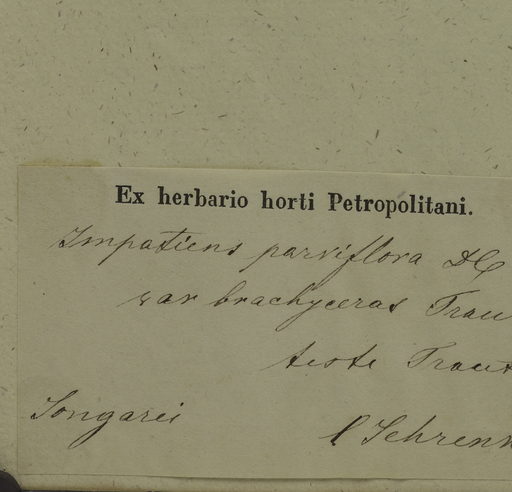 Ex herbario horti Petropolitani.
Impatiens parviflora DC
var brachyceras Trau
teste Traut
Songarei
l Schrenk